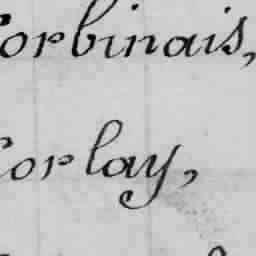 Corbinais,
Corlay,